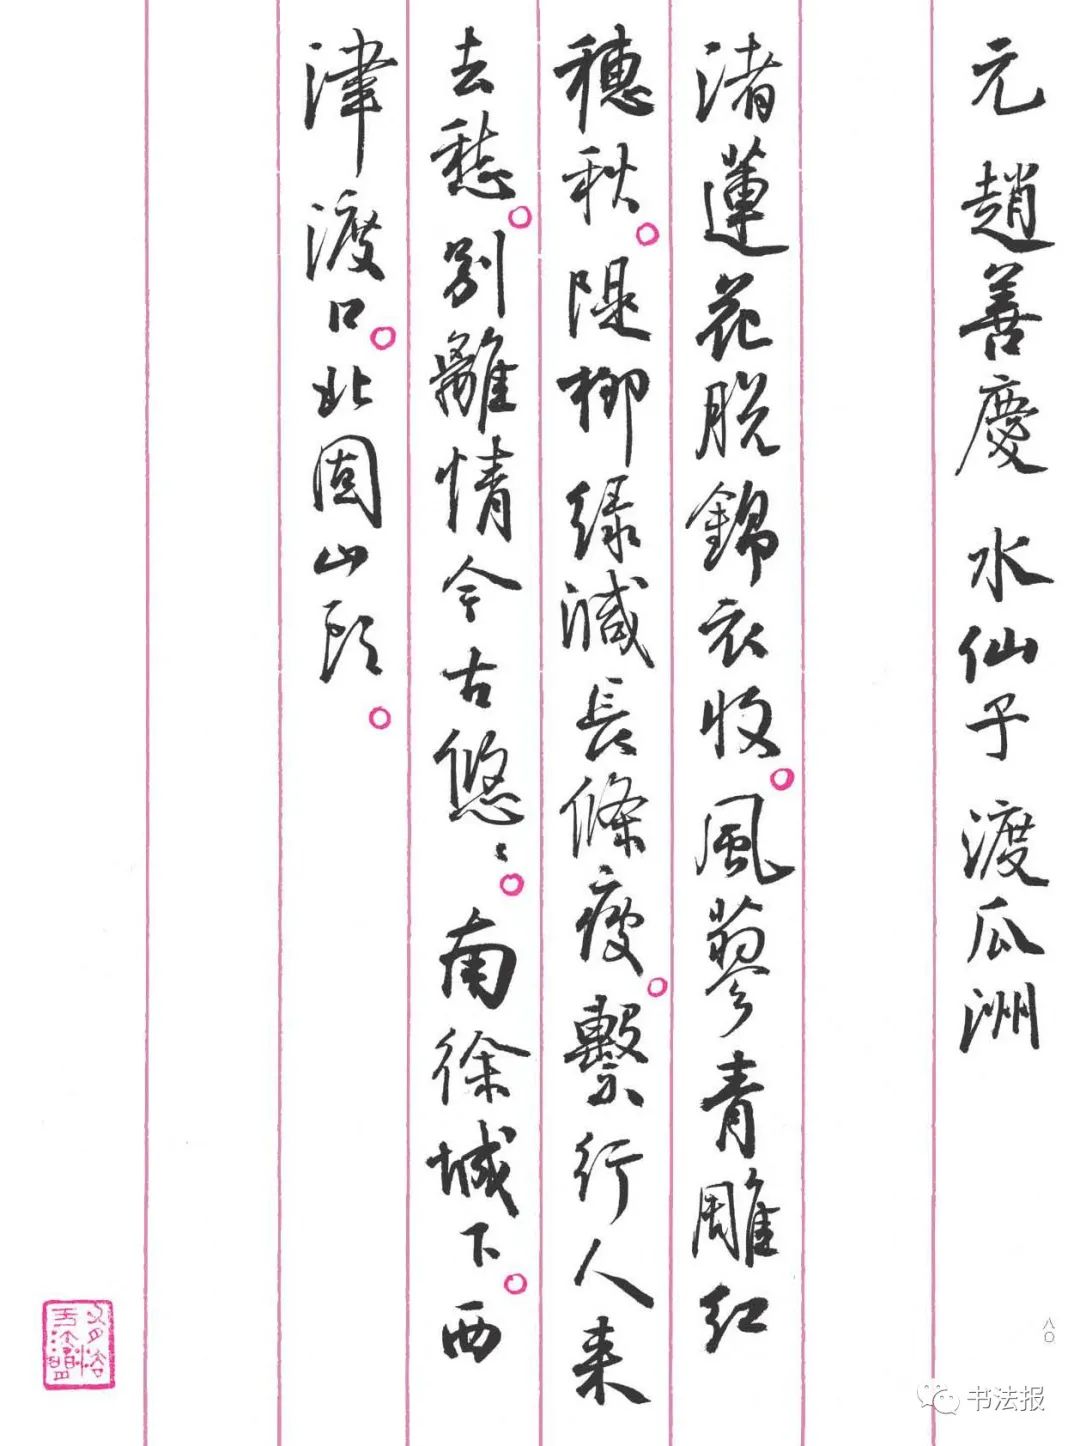 元 趙善慶 水仙子 渡瓜洲
渚蓮花脱錦衣收。風蓼青雕紅
穗秋。隄柳綠減長條瘦。繫行人来
去愁。別離情今古悠〻。南徐城下。西
津渡口。北固山头。
八〇
书法报